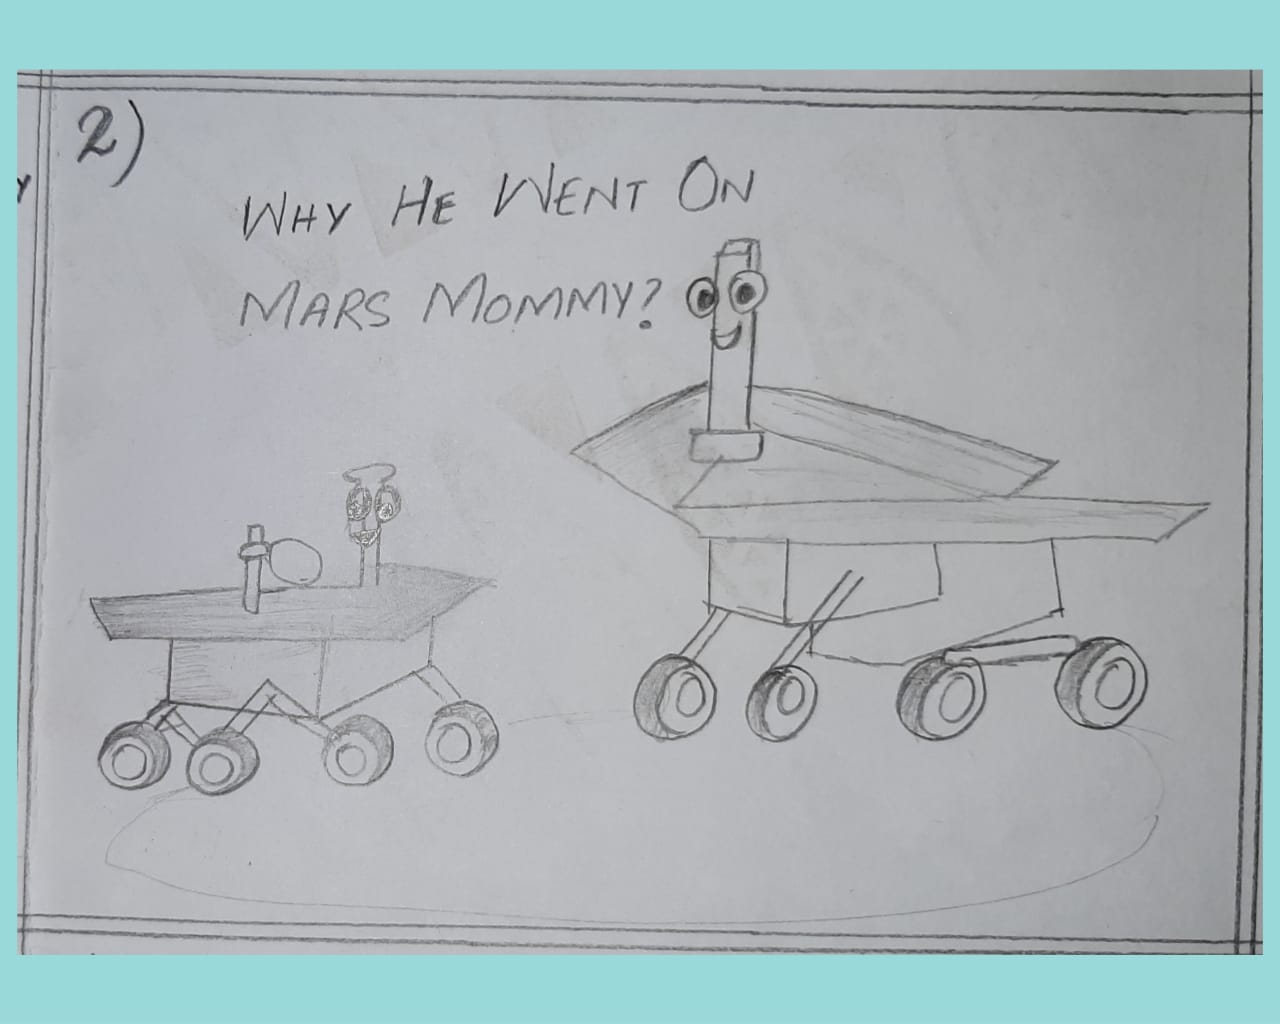 2)
WHY HE WENT ON
MARS MOMMY?